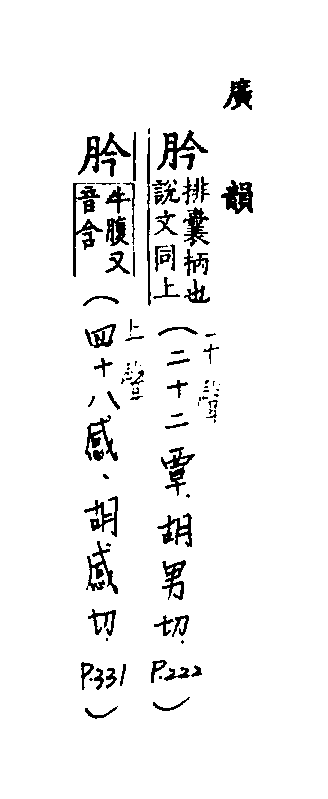 廣韻
肣 排囊柄也
說文同上
(二十二覃、胡男切. P.222)
聲
肣 牛腹又
音含
(四十八感、胡感切. P.331)
上聲